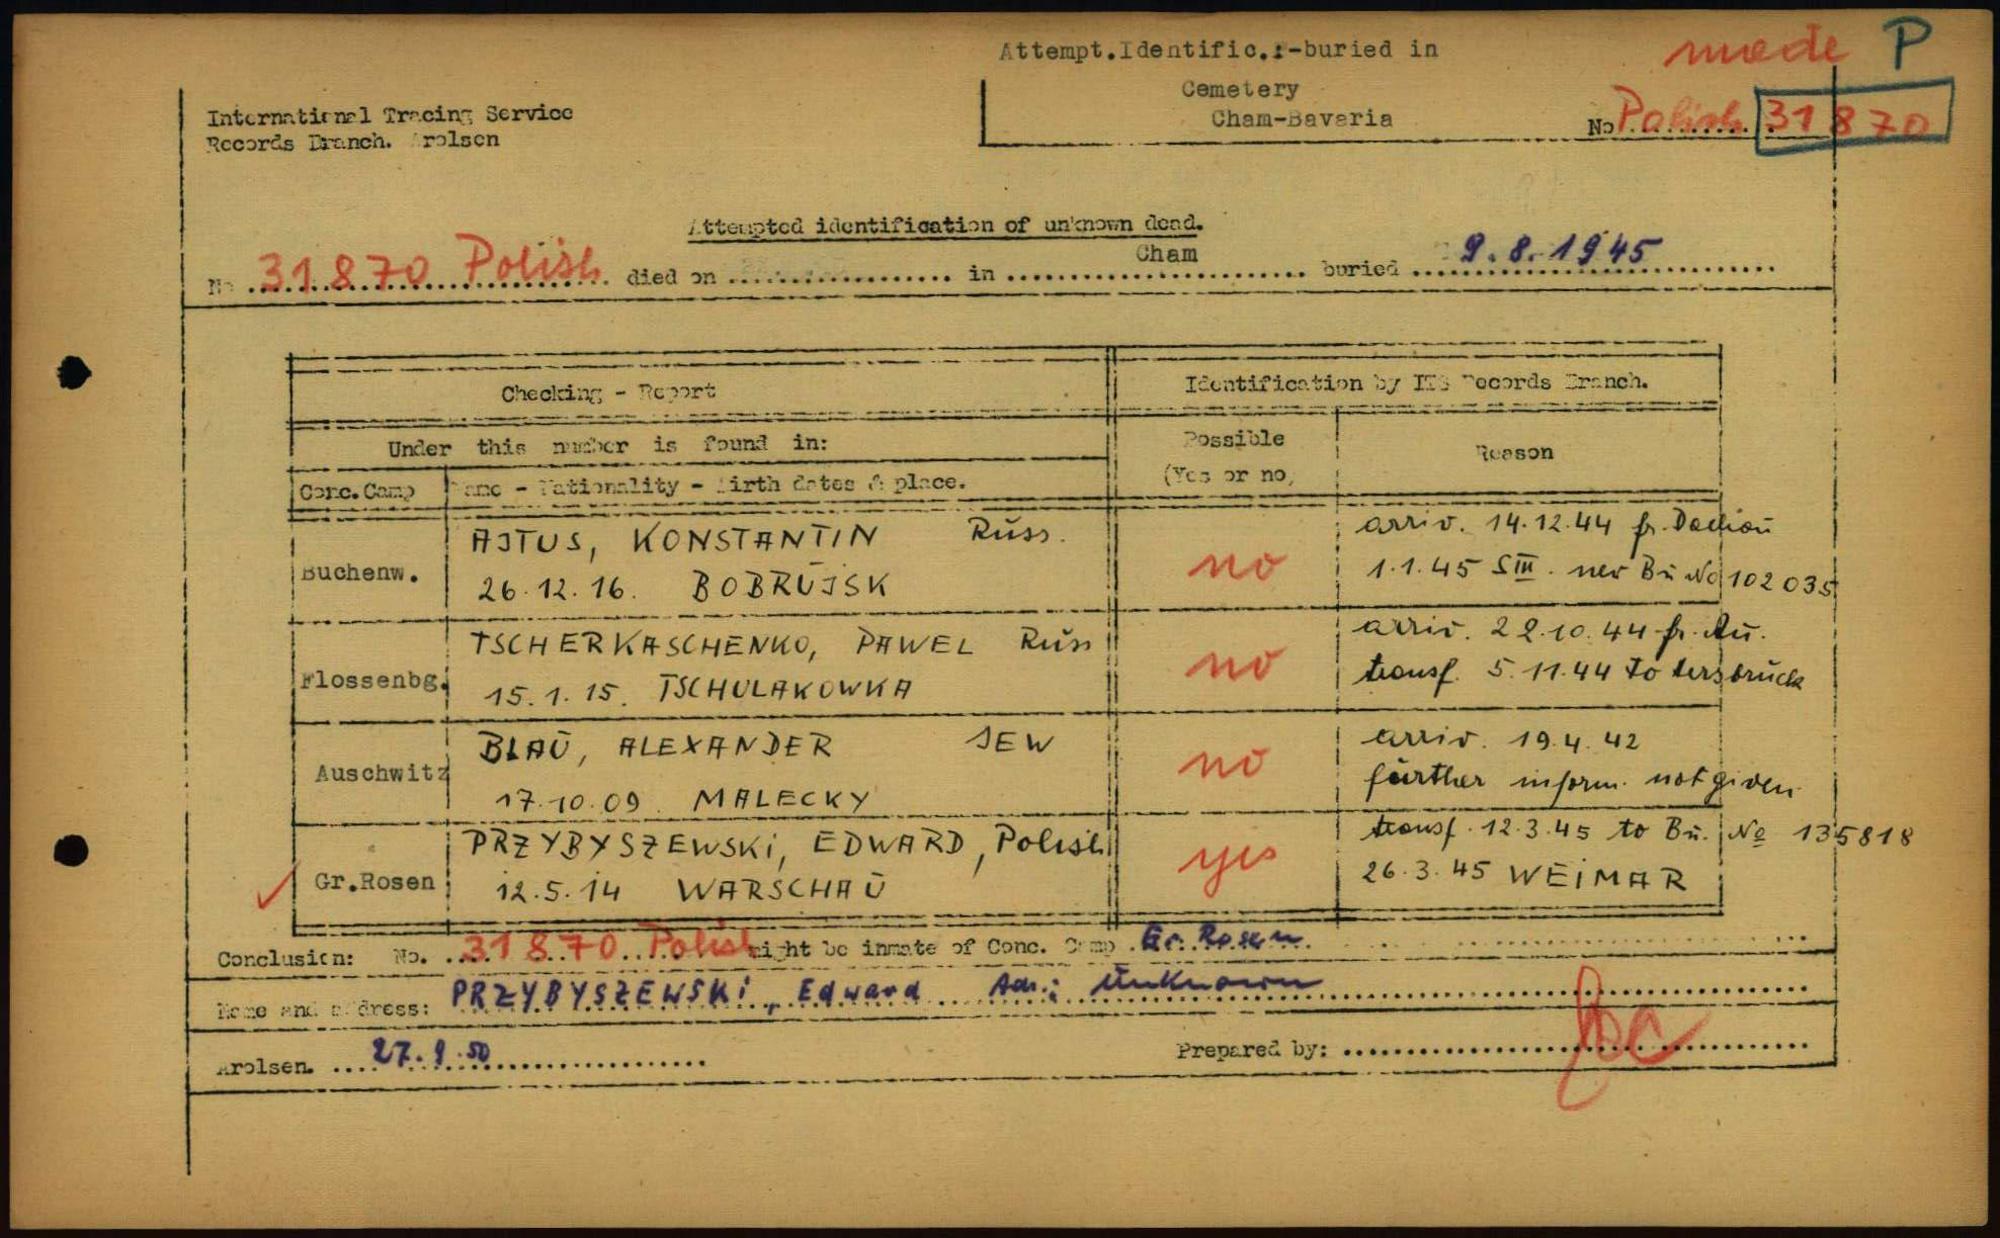 Attempt.Identific.:-buried in
made P
Cemetery
Cham-Bavaria
No. Polish 31870
International Tracing Service
Records Branch. Arolsen
Attempted identification of unknown dead.
No 31870 Polish died on in Cham buried 9.8.1945
Checking - Report
Identification by ITS Records Branch.
Under this number is found in:
Possible
(Yes or no)
Reason
Conc.Camp
Name - Nationality - Birth dates & place.
Buchenw.
AJTUS, KONSTANTIN Russ.
26.12.16. BOBRUJSK
no
arriv. 14.12.44 fr. Dachau
1.1.45 SIII. new Bu No 102035
Flossenbg.
TSCHERKASCHENKO, PAWEL Russ
15.1.15. TSCHULAKOWKA
no
arriv. 22.10.44 fr. Au.
transf. 5.11.44 to Hersbruck
Auschwitz
BLAU, ALEXANDER JEW
17.10.09. MALECKY
no
arriv. 19.4.42
further inform. not given
Gr.Rosen
PRZYBYSZEWSKI, EDWARD, Polish
12.5.14 WARSCHAU
yes
transf. 12.3.45 to Bu. No 135818
26.3.45 WEIMAR
Conclusion: No. 31870 Polish might be inmate of Conc. Camp Gr. Rosen
Name and address: PRZYBYSZEWSKI, Edward Adr.: Unknown
Arolsen. 27.9.50
Prepared by: